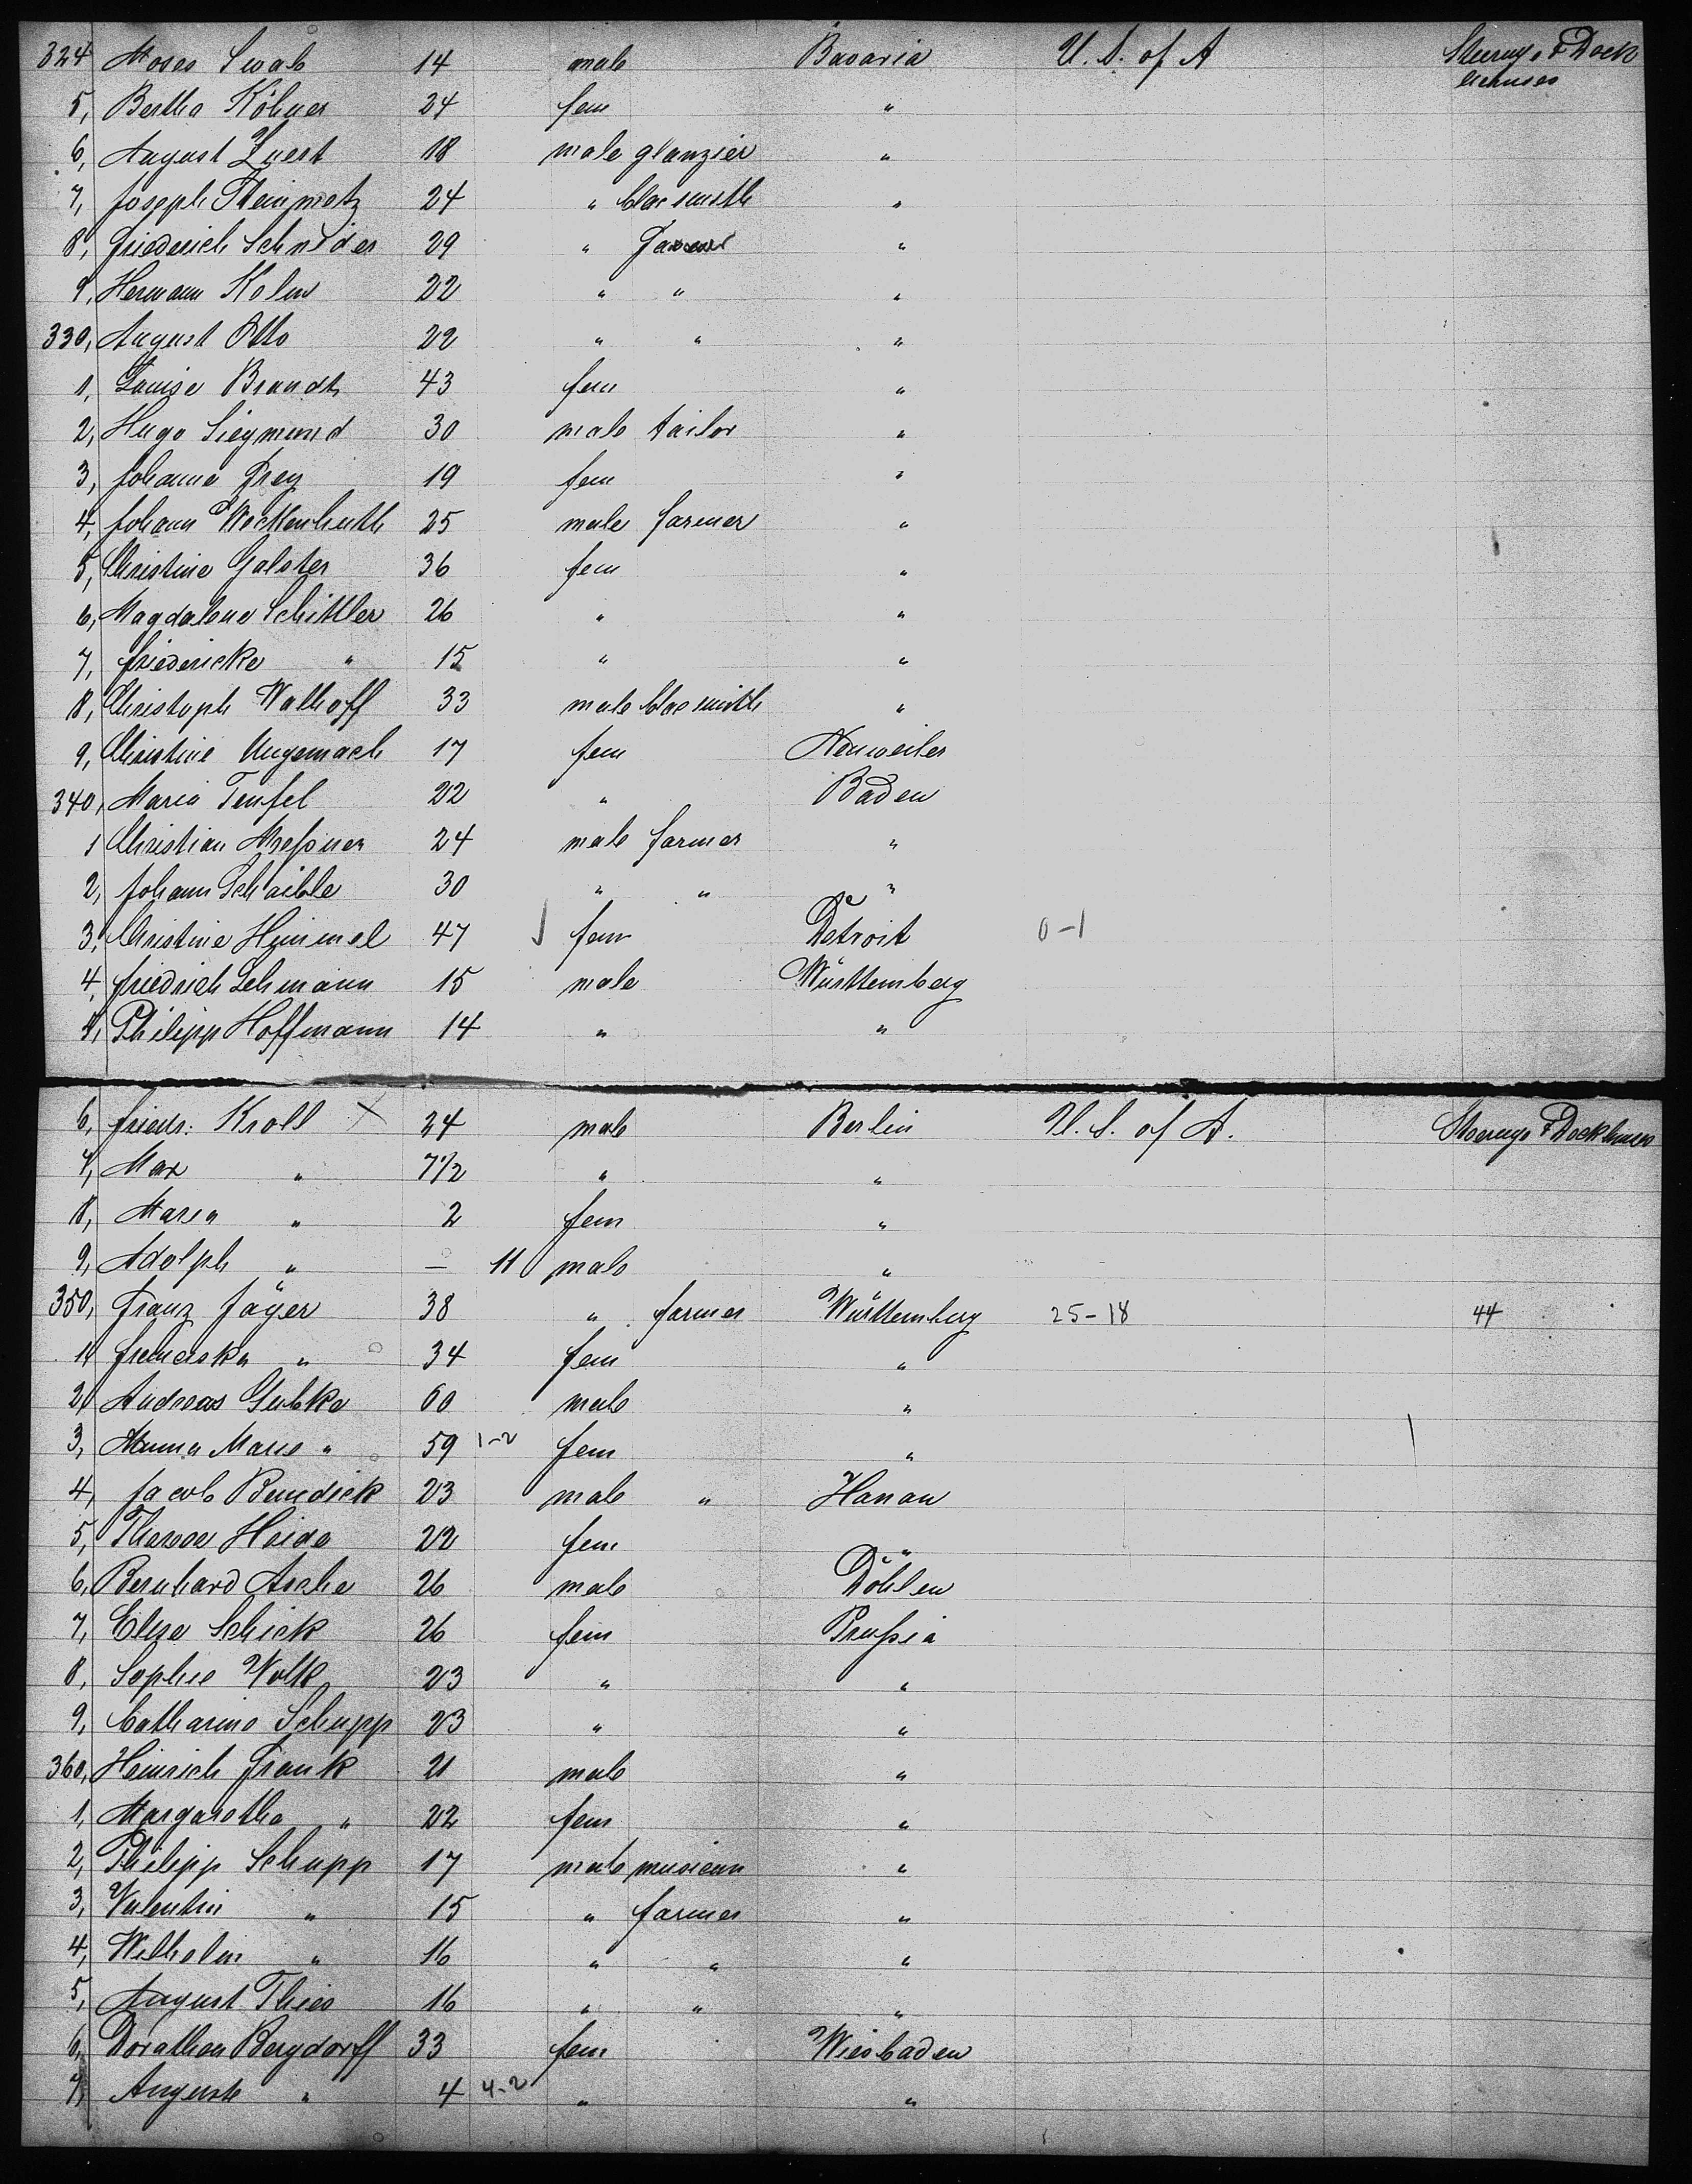 324 Moses Swab 14 male Bavaria U. S. of A Steerage F Dock
5, Bertha Köhner 24 fem "
6, August Luest 18 male glanzier "
7, Joseph Steinmetz 24 " blacsmith "
8, Friederich Schnider 29 " "
9, Hermann Kolm 22 " " "
330, August Otto 22 " " "
1, Louise Brandt 43 fem "
2, Hugo Siegmund 30 male tailor "
3, Johanne Frey 19 fem "
4, Johann Wecklenhuth 25 male farmer "
5, Christine Galster 36 fem "
6, Magdalene Schittler 26 " "
7, Friedericke " 15 " "
8, Christoph Walhoff 33 male blacsmith "
9, Christine Ungemach 17 fem Neuweiler
340, Maria Teufel 22 " Baden
1 Christian Meßner 24 male farmer "
2, Johann Schaible 30 " " "
3, Christine Himmel 47 fem Detroit 0-1
4, Friedrich Lehmann 15 male Württemberg
5, Philipp Hoffmann 14 " "
6, Friedr: Kroll X 34 male Berlin U. S. of A. Steerage F Dockhouse
7, Max " 7 1/2 " "
8, Maria " 2 fem "
9, Adolph " — 11 male "
350, Franz Jäger 38 " farmer Württemberg 25-18 44
1, Franciska " 34 fem "
2, Andreas Glubka 60 male "
3, Anna Marie " 59 1-2 fem "
4, Jacob Benedick 23 male " Hanau
5, Therese Heide 22 fem "
6, Bernhard Asche 26 male Döhlen
7, Elise Schick 26 fem Prußia
8, Sophie Volk 23 " "
9, Catharine Schupp 23 " "
360, Heinrich Frank 21 male "
1, Margaretha " 22 fem "
2, Philipp Schupp 17 male musician "
3, Valentin " 15 " farmer "
4, Wilhelm " 16 " " "
5, August Thies 16 " " "
6, Dorathea Bergdorff 33 fem Wiesbaden
7, Auguste " 4 4-2 " "